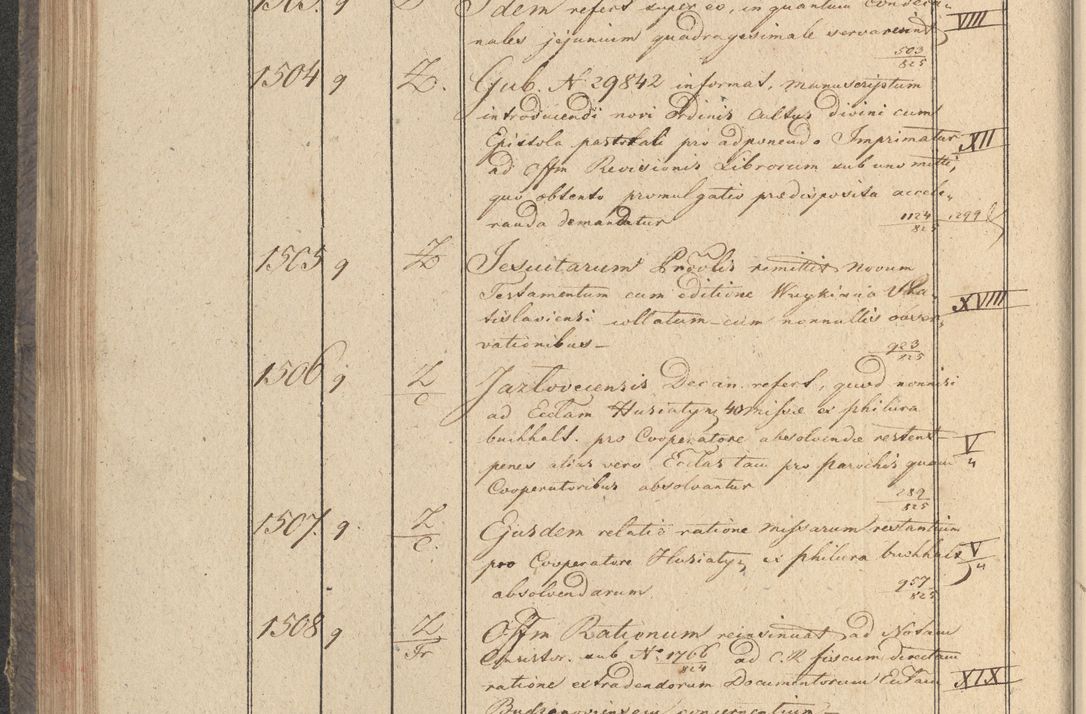 Idem refert super eo, in quantum Condeca„
nales jejunium quadragesimale servarent VIII
503/825
1504 9 Z. Gub. N 29842 informat, manuscriptum
introducendi novi Ordinis Cultus divini cum
Epistola pastorali pro adponendo Imprimatur XII
ad Offm Revisionis Librorum sub uno mitti,
quo obtento promulgatio praedisposita accele„
randa demandatur 1124/825 1299
1505 9 Z Jesuitarum Provlis remittit Novum
Testamentum cum editione Wuykiana
tislaviensi collatum cum nonnullis XVIII
vationibus 923/825
1506 9 Z/C Jazlovecensis Decan. refert, quod nonnisi
ad Ecclam Husiatyn, 40 Missae ex philura
buchhalt. pro Cooperatore absolvendae restent V/4
penes alias vero Ecclas tam pro parochis quam
Cooperatoribus absolvantur 289/825
1507. 9. Z/C. Ejusdem relatio ratione Missarum restantium
pro Cooperatore Husiaty, ex philura buchhalt V/4
absolvendarum 957/825
1508 9 Z/Fr Offm Rationum reinsinuat ad Notam
Consistor. sub No 1766/824 ad C.R. fiscum directam
ratione extradendorum Documentorum Eclam XIX
Budzanoviensem concernentium